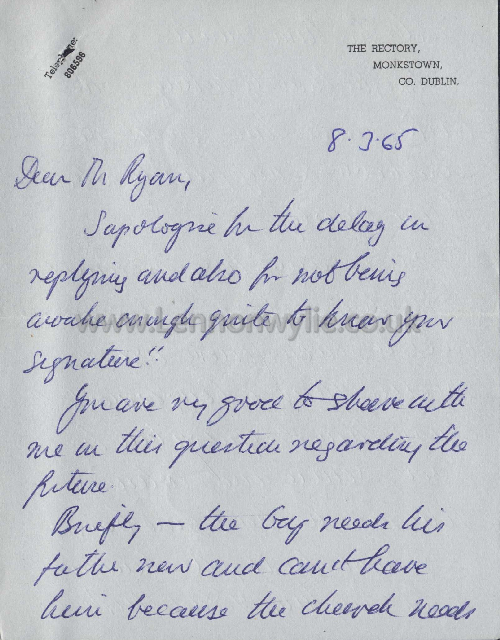 Telephone:
806596
THE RECTORY,
MONKSTOWN,
CO. DUBLIN.
8.3.65
Dear Mr Ryan,
I apologise for the delay in
replying and also for not being
awake enough quite to know your
www.kennonwylie.co.uk
signature!!
You are very good to share with
me in this question regarding the
future.
Briefly — the boy needs his
father now and can't have
him because the church needs